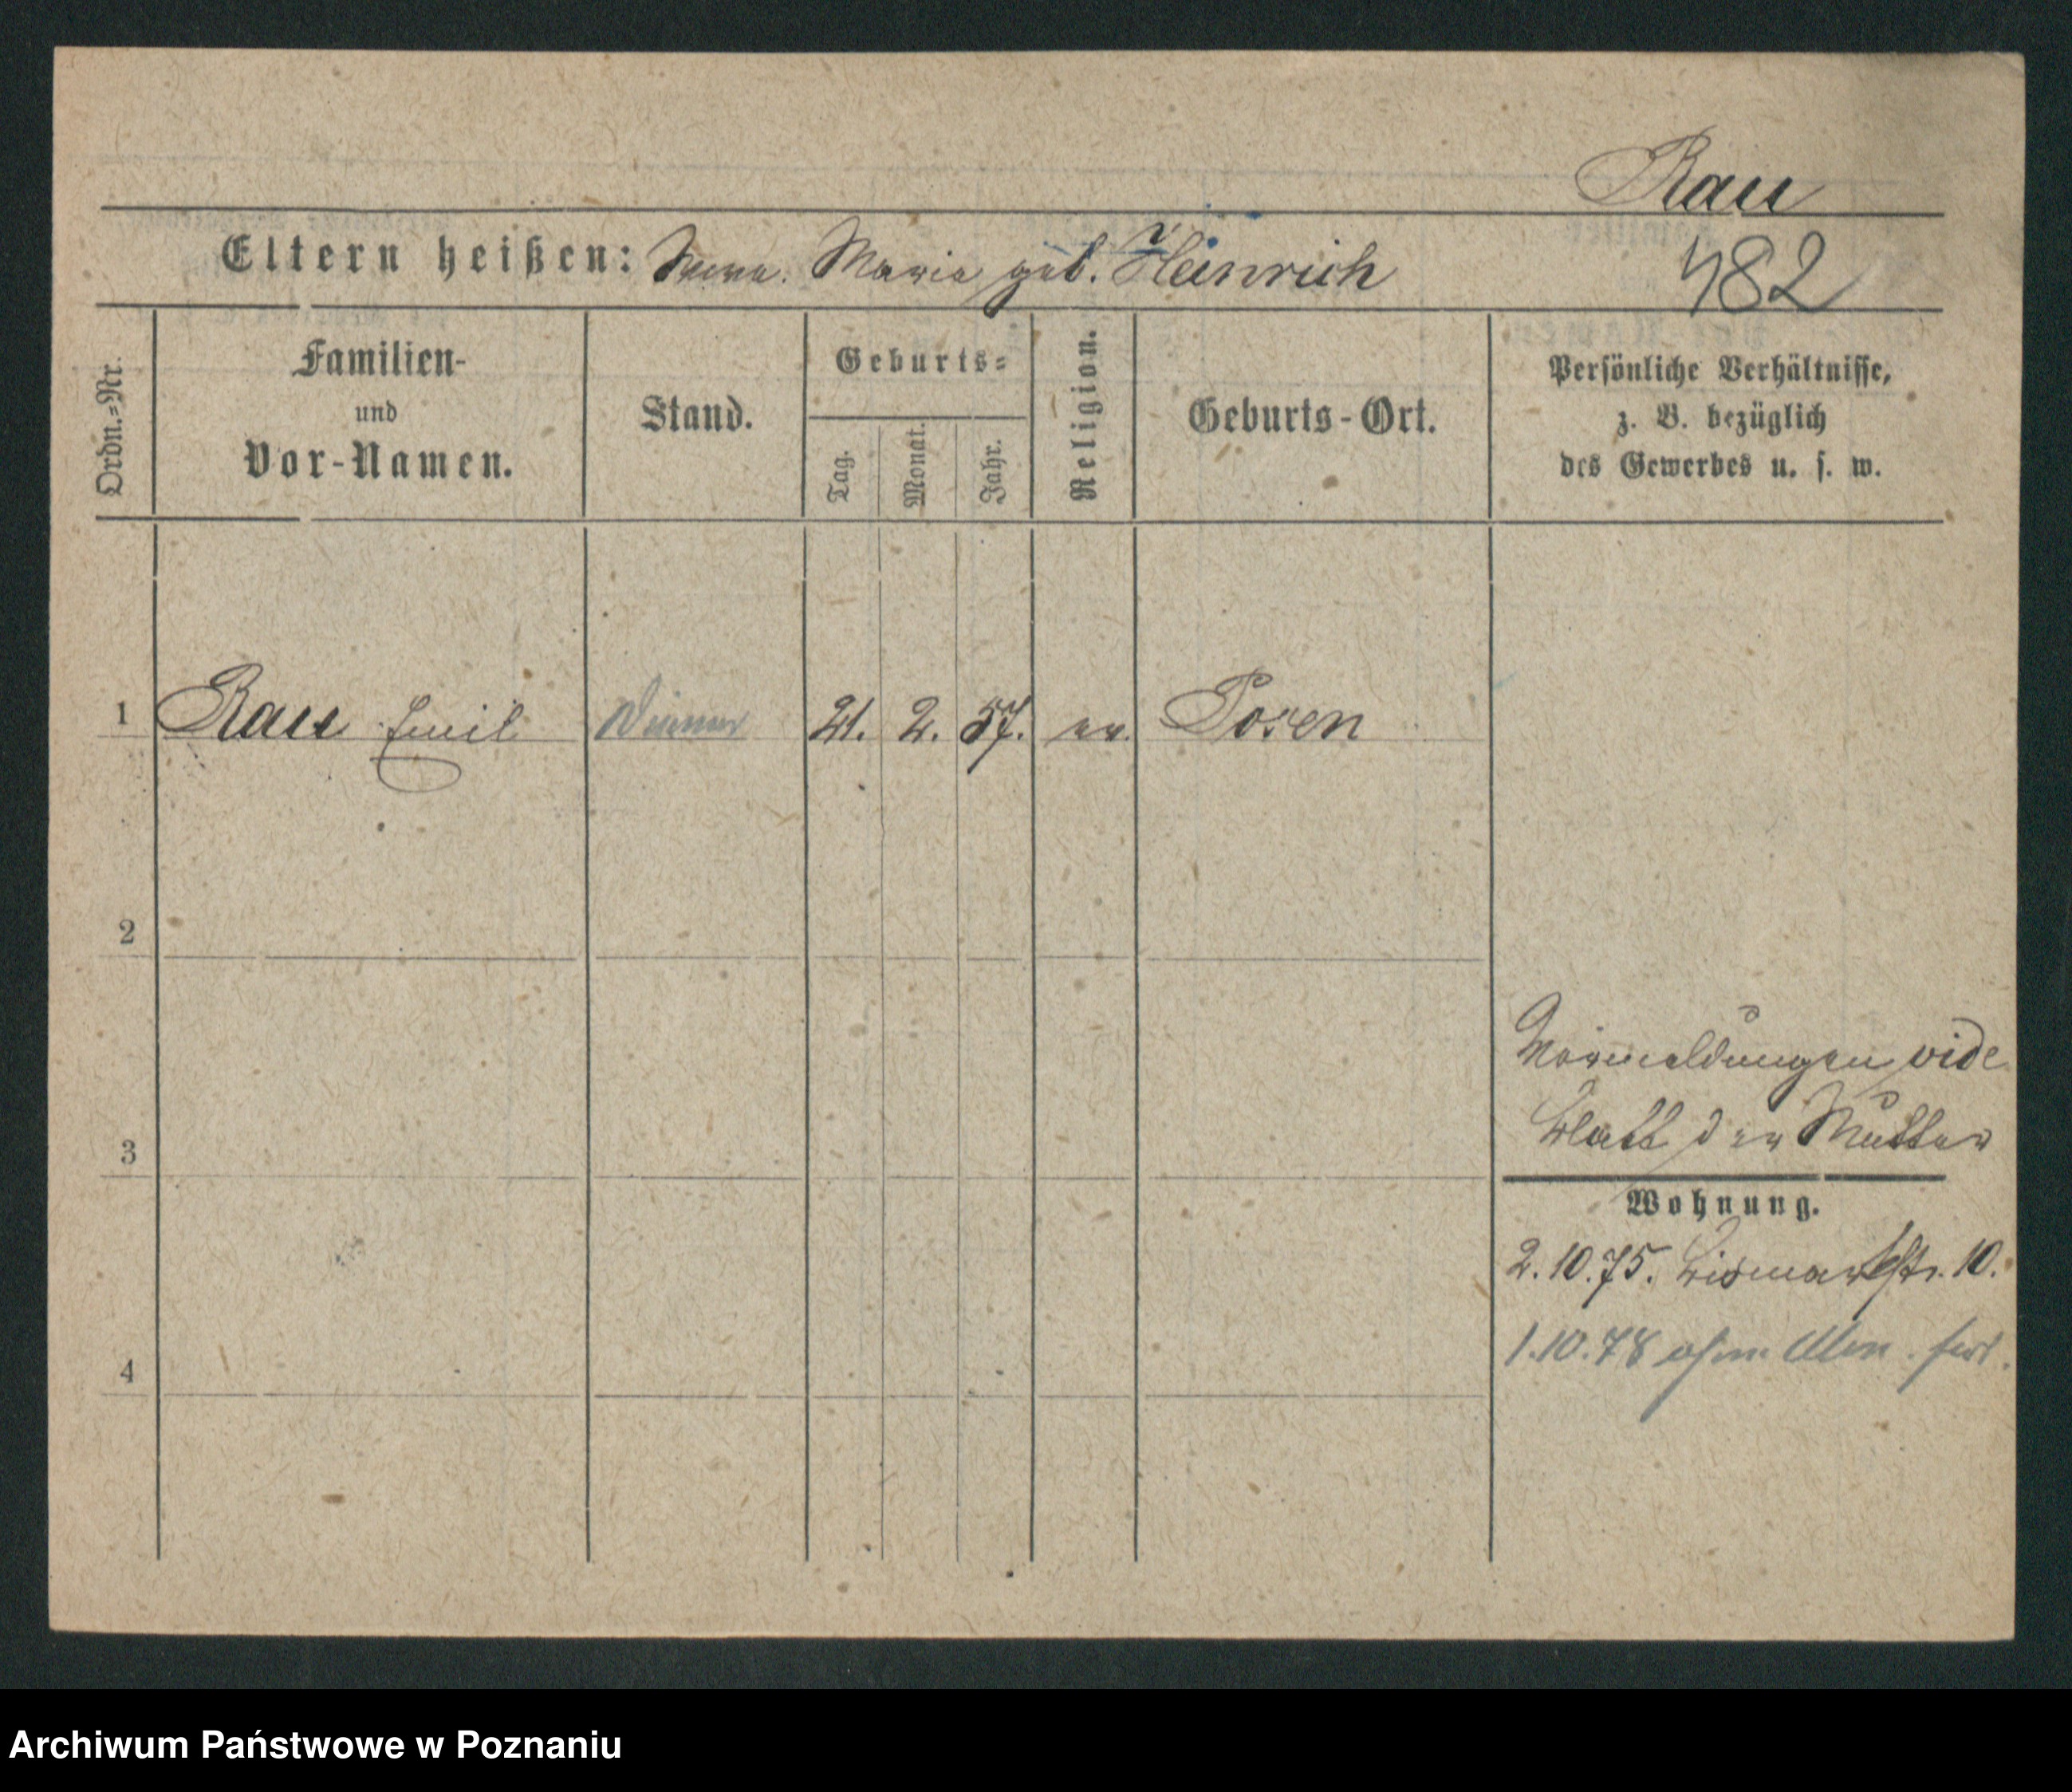 Rau
Eltern heißen: Wwe. Maria geb. Heinrich
482
Ordn.=Nr.
Familien-
und
Vor-Namen.
Stand.
Geburts=
Tag.
Monat.
Jahr.
Religion.
Geburts-Ort.
Persönliche Verhältnisse,
z. B. bezüglich
des Gewerbes u. s. w.
1 Rau Emil 21. 2. 57. ev. Posen
2
Vormeldungen vide
Blatt der Mutter
3
Wohnung.
2.10.75. Bismarkstr. 10.
1.10.78 ohne
4
Archiwum Państwowe w Poznaniu